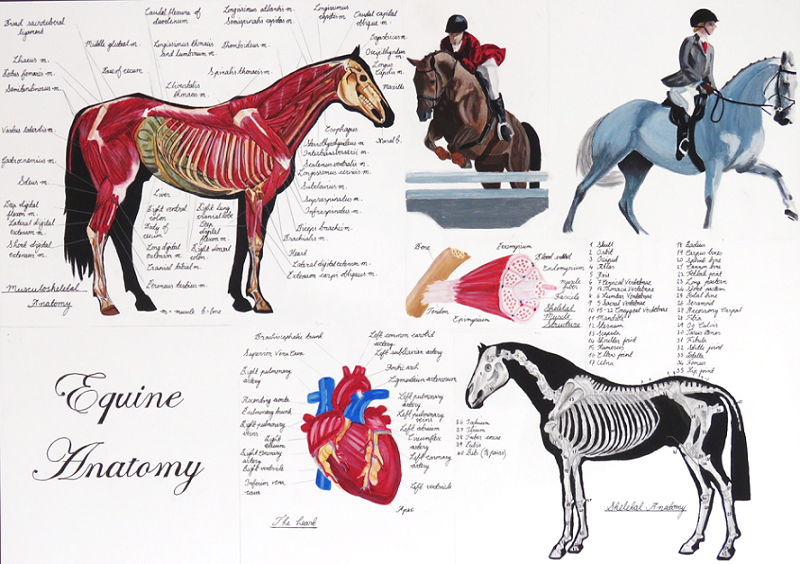 Broad sacrotuberal
ligament
Caudal flexure of
duodenum
Longissimus atlantis m.
Semispinalis capitis m.
Longissimus
capitis m.
Caudal capital
oblique m.
Middle gluteal m.
Longissimus thoracis
and lumborum m.
Rhomboideus m.
Iliacus m.
Base of cecum
Spinalis thoracis m.
Iliocostalis
thoracis m.
Longus
capitis m.
Vastus lateralis m.
Gastrocnemius m.
Soleus m.
Deep digital
flexor m.
Lateral digital
extensor m.
Short digital
extensor m.
Musculoskeletal
Anatomy
Liver
Right ventral
colon
Body of
cecum
Long digital
extensor m.
Cranial tibial m.
Right lung
cranial lobe
Deep
digital
flexor m.
Right dorsal
colon
m = muscle b = bone
Esophagus
Nasal b.
Sternothyrohyoideus m.
Intertransversarii m.
Scalenus ventralis m.
Longissimus cervicis m.
Subclavius m.
Supraspinatus m.
Infraspinatus m.
Biceps brachii m.
Brachialis m.
Heart
Lateral digital extensor m.
Extensor carpi obliquus m.
Bone
Perimysium
Blood vessel
Endomysium
Muscle
fiber
Fascicle
Tendon
Epimysium
Skeletal
Muscle
Structure
1 Skull
2 Orbit
4 Atlas
5 Axis
6 7 Cervical Vertebrae
7 18 Thoracic Vertebrae
8 6 Lumbar Vertebrae
9 5 Sacral Vertebrae
10 15-22 Coccygeal Vertebrae
11 Mandible
12 Sternum
13 Scapula
14 Shoulder point
15 Humerus
16 Elbow point
17 Ulna
18 Radius
19 Carpus bones
20 Splint bone
21 Cannon bone
22 Fetlock point
23 Long pastern
24 Short pastern
25 Pedal bone
26 Sesamoid
27 Accessory Carpal
28 Fibia
29 Os Calcis
30 Tarsus bones
31 Fibula
32 Stifle point
33 Patella
34 Femur
35 Hip point
36 Ischium
37 Ilium
39 Pubis
40 Rib (18 pairs)
Skeletal Anatomy
Equine
Anatomy
Brachiocephalic trunk
Superior Vena Cava
Right pulmonary
artery
Ascending aorta
Pulmonary trunk
Right pulmonary
veins
Right
atrium
Right coronary
artery
Right ventricle
Inferior vena
cava
Left common carotid
artery
Left subclavian artery
Aortic arch
Ligamentum arteriosum
Left pulmonary
artery
Left pulmonary
veins
Left atrium
Circumflex
artery
Left coronary
artery
Left ventricle
Apex
The Heart